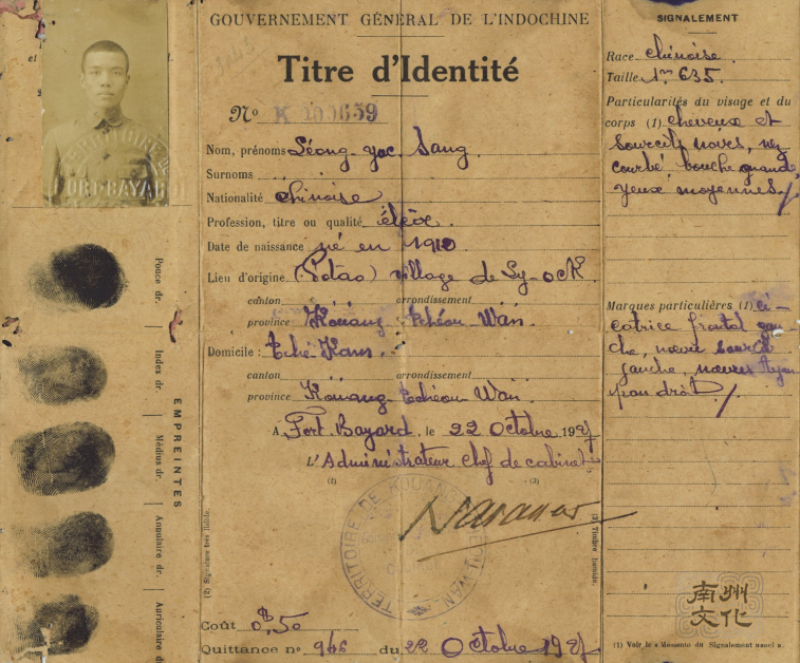 GOUVERNEMENT GÉNÉRAL DE L'INDOCHINE
Titre d'Identité
Nº K 100659
Nom, prénoms Léong yac Sang
Surnoms
Nationalité chinoise
Profession, titre ou qualité élève.
Date de naissance né en 1910
Lieu d'origine (Potao) village de Sy-ock
canton arrondissement
province Kouang Tchéou Wan.
Domicile : Tché Kam.
canton arrondissement
province Kouang Tchéou Wan.
A Fort Bayard, le 22 Octobre 1927
L'Administrateur chef de cabinet
(1) (3)
TERRITOIRE DE KOUANG TCHEOU WAN
(2) Signature très lisible.
(3) Timbre humide.
Coût 0$,50
Quittance nº 946 du 22 Octobre 1927
SIGNALEMENT
Race chinoise.
Taille 1m 635.
Particularités du visage et du
corps (1) cheveux et
sourcils noirs, nez
courbé, bouche grande,
yeux moyennes/
Marques particulières (1) ci-
catrice frontal gau-
che, nœvus sourcil
gauche, nœvus
droit./
(1) Voir le « Mémento du Signalement usuel ».
TERRITOIRE DE
FORT-BAYARD
EMPREINTES
Pouce dr.
Index dr.
Médius dr.
Annulaire dr.
Auriculaire dr.
南州
文化